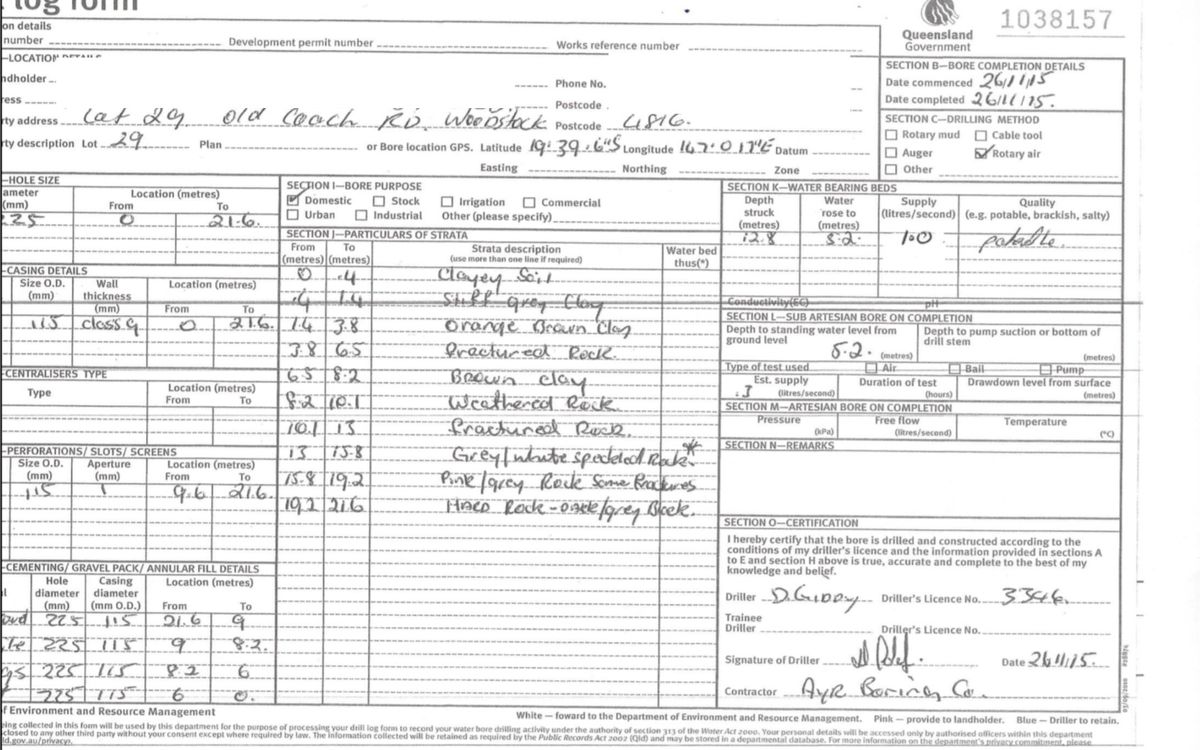 log form
1038157
Queensland
Government
on details
number Development permit number Works reference number
LOCATION DETAILS
ndholder Phone No.
ess Postcode
rty address Lot 29 Old Coach RD. Woodstock Postcode 4816.
rty description Lot 29 Plan or Bore location GPS. Latitude 19.39.6"S Longitude 147.0 17"E Datum
Easting Northing Zone
SECTION B—BORE COMPLETION DETAILS
Date commenced 26/11/15
Date completed 26/11/15.
SECTION C—DRILLING METHOD
Rotary mud Cable tool
Auger Rotary air
Other
—HOLE SIZE
ameter (mm) Location (metres)
From To
225 0 21.6.
—CASING DETAILS
Size O.D. (mm) Wall thickness (mm) Location (metres)
From To
115 class 9 0 21.6.
—CENTRALISERS TYPE
Type Location (metres)
From To
—PERFORATIONS/ SLOTS/ SCREENS
Size O.D. (mm) Aperture (mm) Location (metres)
From To
115 1 9.6 21.6.
—CEMENTING/ GRAVEL PACK/ ANNULAR FILL DETAILS
Hole diameter (mm) Casing diameter (mm O.D.) Location (metres)
From To
225 115 21.6 9
225 115 9 8.2.
gs 225 115 8.2 6
225 115 6 0.
SECTION I—BORE PURPOSE
Domestic Stock Irrigation Commercial
Urban Industrial Other (please specify)
SECTION J—PARTICULARS OF STRATA
From (metres) To (metres) Strata description (use more than one line if required) Water bed thus(*)
0 .4 Clayey Soil
.4 1.4 Stiff grey Clay
1.4 3.8 Orange Brown Clay
3.8 6.5 Fractured Rock.
6.5 8.2 Brown clay
8.2 10.1 Weathered Rock
10.1 13 Fractured Rock.
13 15.8 Grey/white speckled Rock. *
15.8 19.2 Pink/grey Rock Some Fractures
19.2 21.6 Hard Rock - /grey
SECTION K—WATER BEARING BEDS
Depth struck (metres) Water rose to (metres) Supply (litres/second) Quality (e.g. potable, brackish, salty)
12.8 5.2. 1.0 potable.
Conductivity(EC) pH
SECTION L—SUB ARTESIAN BORE ON COMPLETION
Depth to standing water level from ground level 5.2. (metres) Depth to pump suction or bottom of drill stem (metres)
Type of test used Air Bail Pump
Est. supply .3 (litres/second) Duration of test (hours) Drawdown level from surface (metres)
SECTION M—ARTESIAN BORE ON COMPLETION
Pressure (kPa) Free flow (litres/second) Temperature (°C)
SECTION N—REMARKS
SECTION O—CERTIFICATION
I hereby certify that the bore is drilled and constructed according to the
conditions of my driller's licence and the information provided in sections A
to E and section H above is true, accurate and complete to the best of my
knowledge and belief.
Driller D. Giddy Driller's Licence No. 3346.
Trainee
Driller Driller's Licence No.
Signature of Driller Date 26/11/15.
Contractor Ayr Boring Co.
f Environment and Resource Management
White — foward to the Department of Environment and Resource Management. Pink — provide to landholder. Blue — Driller to retain.
eing collected in this form will be used by this department for the purpose of processing your drill log form to record your water bore drilling activity under the authority of section 313 of the Water Act 2000. Your personal details will be accessed only by authorised officers within this department
closed to any other third party without your consent except where required by law. The information collected will be retained as required by the Public Records Act 2002 (Qld) and may be stored in a departmental database. For more information on the department's privacy commitment, please
ld.gov.au/privacy.